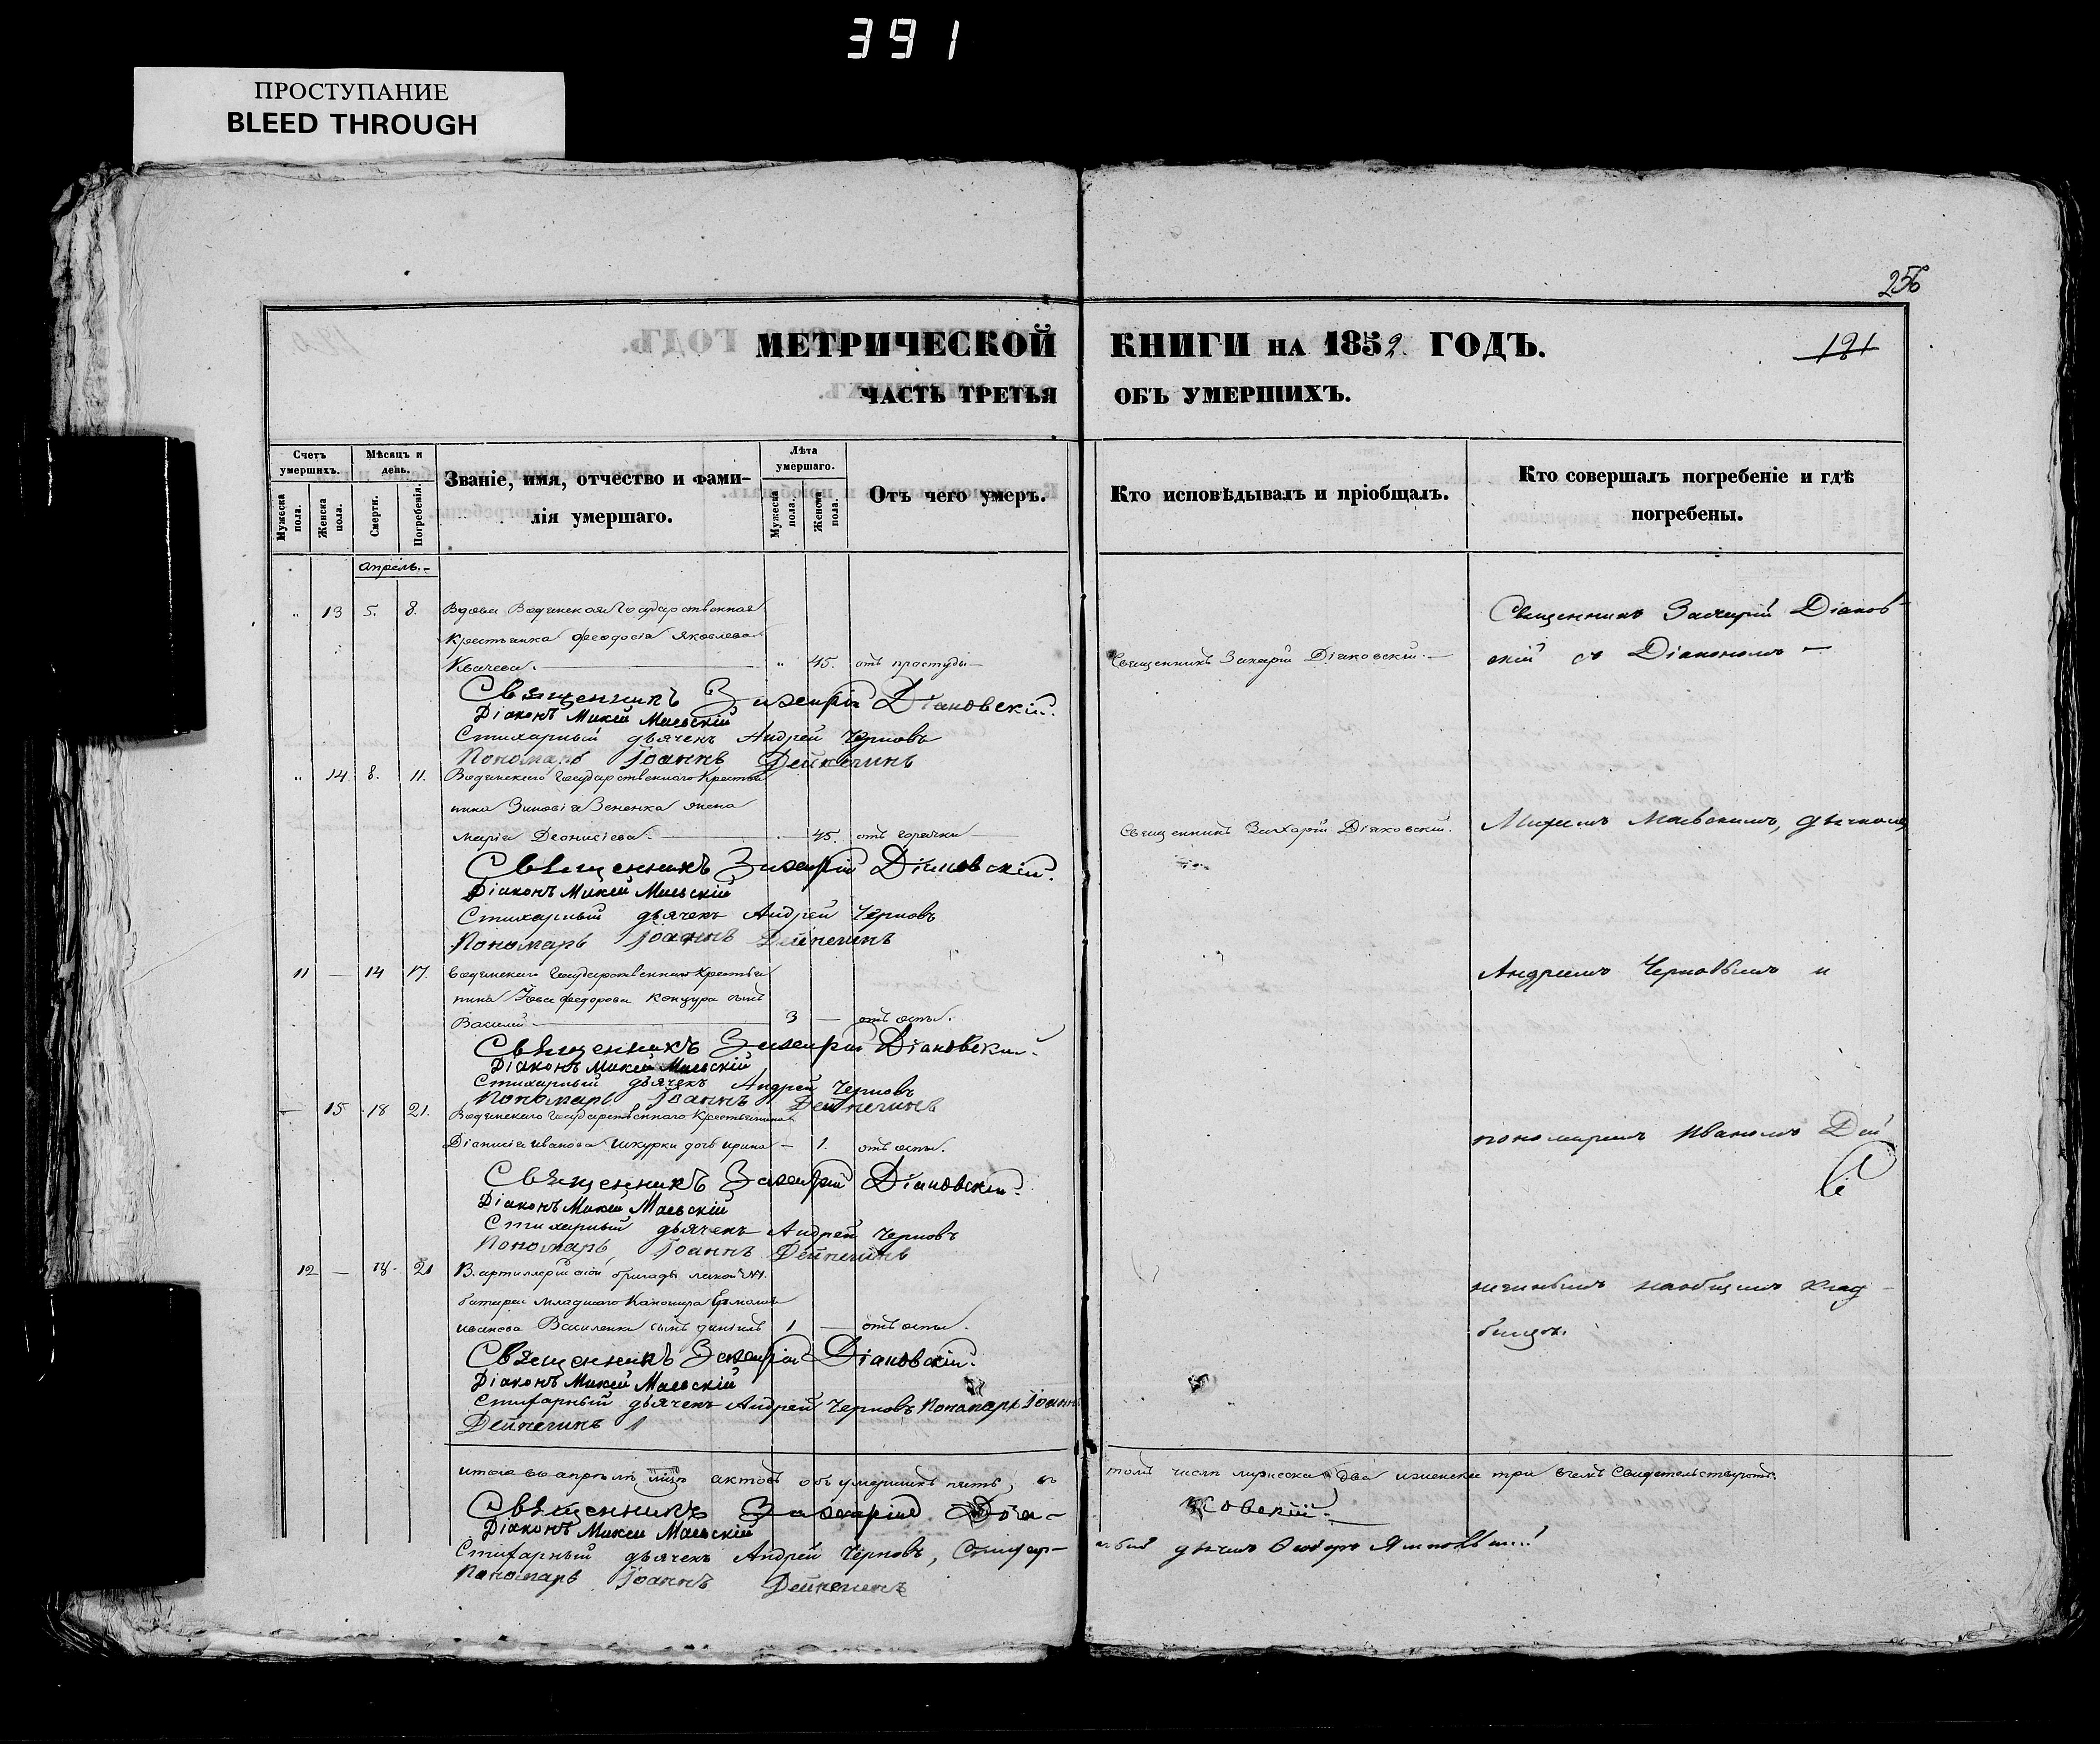 391
ПРОСТУПАНИЕ
BLEED THROUGH
256
МЕТРИЧЕСКОЙ КНИГИ НА 1852. ГОДЪ.
181
ЧАСТЬ ТРЕТЬЯ ОБЪ УМЕРШИХЪ.
Счетъ умершихъ.
Мѣсяцъ и день.
Званіе, имя, отчество и фамилія умершаго.
Лѣта умершаго.
Отъ чего умеръ.
Кто исповѣдывалъ и пріобщалъ.
Кто совершалъ погребеніе и гдѣ погребены.
Мужеска пола.
Женска пола.
Смерти.
Погребенія.
Мужеска пола.
Женска пола.
Апрель.
" 13 5. 8. Вдова Водянская Государственная
Крестьянка Феодосія Яковлева
Квачева. " 45. отъ простуды
Священникъ Захарій Діаковскій.
Священникъ Захарій Діаков-
скій съ Діакономъ
Священникъ Захарій Діаковскій.
Діаконъ Мокей Маевскій
Стихарный дьячекъ Андрей Черновъ
Пономарь Іоаннъ Дейнегинъ
" 14. 8. 11. Водянскаго Государственнаго Крестья
нина Зиновія Зененка жена
Марія Деонисіева. 45. отъ горячки
Священникъ Захарій Діаковскій.
Маевскимъ, дьячкомъ
Священникъ Захарій Діаковскій.
Діаконъ Мокей Маевскій
Стихарный дьячекъ Андрей Черновъ
Пономарь Іоаннъ Дейнегинъ
11 — 14 17. Водянскаго Государственнаго Крестья
нина Іова Федорова Концура сынъ
Василій 3 — отъ оспы.
Андреемъ Черновымъ и
Священникъ Захарій Діаковскій.
Діаконъ Мокей Маевскій
Стихарный дьячекъ Андрей Черновъ
Пономарь Іоаннъ Дейнегинъ
— 15 18 21. Водянскаго Государственнаго Крестьянина
Діонисія Иванова Шкурки дочь Ирина — 1. отъ оспы.
пономаремъ Иваномъ Дей
Священникъ Захарій Діаковскій.
Діаконъ Мокей Маевскій
Стихарный дьячекъ Андрей Черновъ
Пономарь Іоаннъ Дейнегинъ
12 — 21 артиллерійской бригады
батареи младшаго Канонира
Иванова Василенка сынъ Даніилъ 1 — отъ оспы.
негинымъ на общемъ клад-
бищѣ.
Священникъ Захарій Діаковскій.
Діаконъ Мокей Маевскій
Стихарный дьячекъ Андрей Черновъ Пономарь Іоаннъ
Дейнегинъ
Итого въ апрѣлѣ актовъ объ умершихъ пять, въ томъ числѣ мужеска два и женска три въ чемъ свидетельствуютъ.
Священникъ Захарій Діаковскій.
Діаконъ Мокей Маевскій
Стихарный дьячекъ Андрей Черновъ, Стихарный дьячекъ
Пономарь Іоаннъ Дейнегинъ